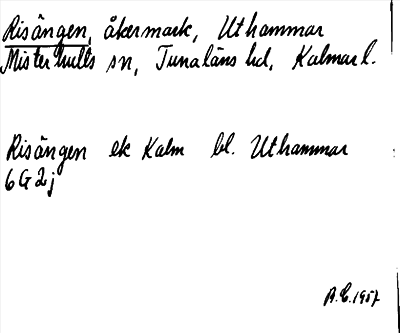 Risängen, åkermark, Uthammar
Misterhults sn, Tunaläns hd, Kalmar l.
Risängen ek Kalm bl. Uthammar
6G2j
A.E. 1957